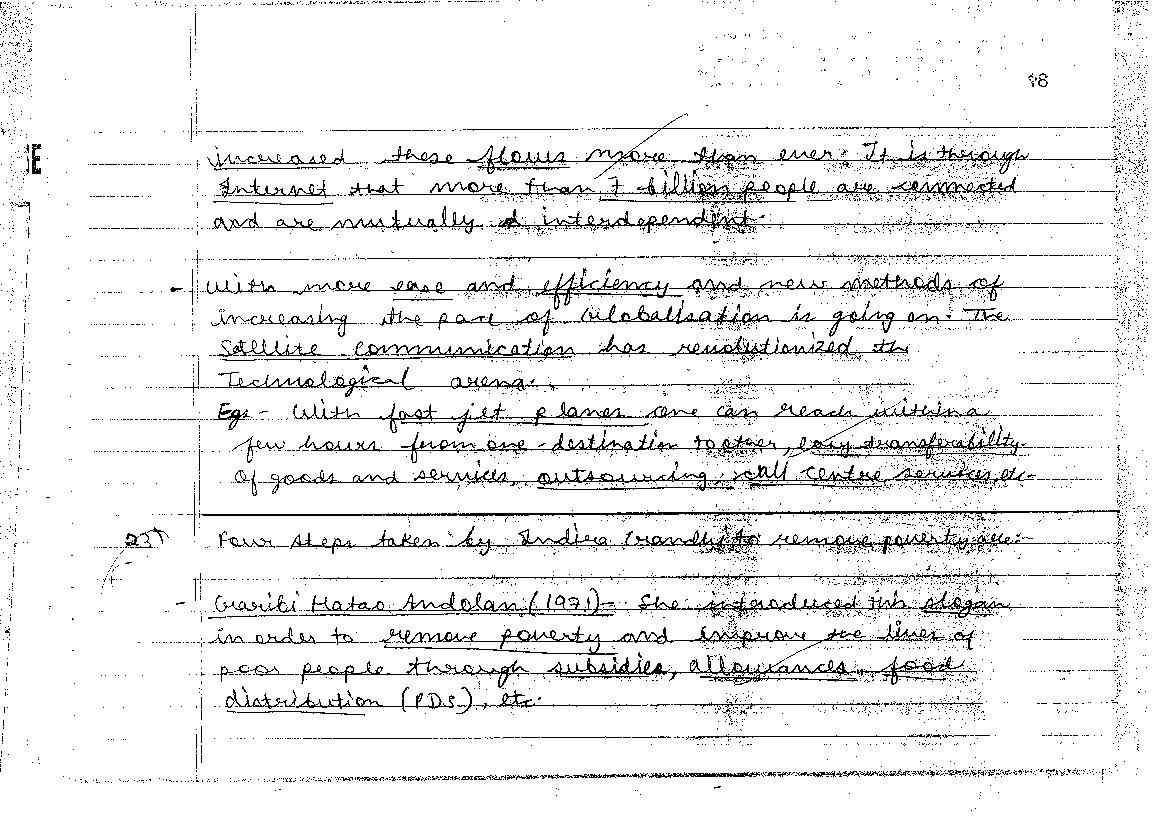 18
E
increased these flows more than ever. It is through
Internet that more than 7 billion people are connected
and are mutually interdependent.
- With more ease and efficiency and new methods of
increasing the pace of Globalisation is going on. The
Satellite communication has revolutionized the
Technological arena.
Eg:- With fast jet planes one can reach within a
few hours from one destination to other, easy transferability
of goods and services, outsourcing, call centre services, etc.
23)
Four steps taken by Indira Gandhi to remove poverty are:-
- Garibi Hatao Andolan (1971)- She introduced this slogan
in order to remove poverty and improve the lives of
poor people through subsidies, allowances, food
distribution (P.D.S.), etc.